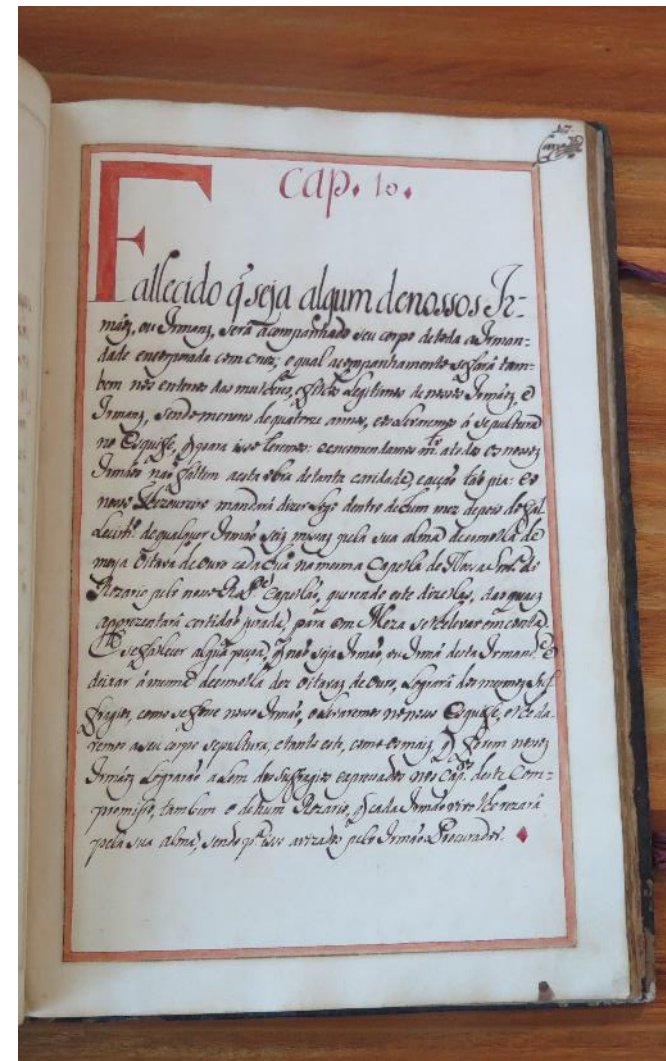 Cap. 10.
Fallecido q̃ seja algum de nossos Ir=
mãoz, ou Irmanz, será acompanhado seu corpo de toda a Irman=
dade encorporada com cruz; e igual acompanhamento se fará tam=
bem nos enterros das mulheres, e filhos legitimos de nossos Irmãoz, e
Irmanz, sendo menores de quatorze annos, e os levaremos á sepultura
no Esquife, q̃ para isso temos: e encomendamos m.to a todos os nossos
Irmãos não faltem a esta obra de tanta caridade, e acção tão pia: e o
nosso Thezoureiro mandará dizer logo dentro de hum mez depois do fal=
lecim.to de qualquer Irmão seiz missas pela sua alma de esmolla de
meya Oitava de Ouro cada huã na mesma Capella de Nossa Snr.ª do
Rozario pelo nosso R.do P.e Capellão, querendo este dizellas, das quaez
apprezentará certidão jurada, para em Meza se lhe levar em conta.
E se falecer alguã pessoa, q̃ não seja Irmão, ou Irmã desta Irmand.e e
deixar á mesma de esmolla dez oitavas de Ouro, logrará dos mesmos Suf=
fragios, como se fosse nosso Irmão, e o levaremos no nosso Esquife, e lhe da=
remos a seu corpo sepultura, e tanto este, como os maiz, q̃ forem nossos
Irmãoz lograrão alem dos Suffragios expressados nos Cap.os deste Com=
promisso, tambem o de hum Rozario, q̃ cada Irmão vivo lhe rezará
pela sua alma, sendo p.ª isso avizados pelo Irmão Procurador.